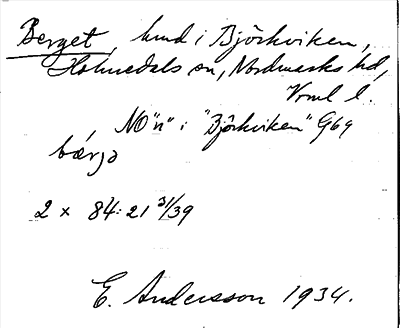 Berget, hmd i Björkviken,
Holmedals sn, Nordmarks hd,
Vrml l.
NO "n" i "Björkviken" G69
bærjə
2 x 84:21 31/39
E. Andersson 1934.